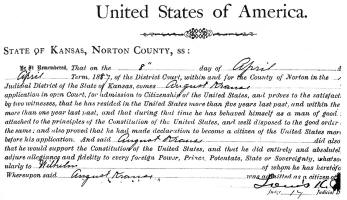 United States of America.
STATE OF KANSAS, NORTON COUNTY, SS:
Be it Remembered, That on the 8" day of April A
April Term, 1887, of the District Court, within and for the County of Norton in the
Judicial District of the State of Kansas, comes August Kraus
application in open Court, for admission to Citizenship of the United States, and proves to the satisfact
by two witnesses, that he has resided in the United States more than five years last past, and within the
more than one year last past, and that during that time he has behaved himself as a man of good
attached to the principles of the Constitution of the United States, and well disposed to the good order
the same; and also proved that he had made declaration to become a citizen of the United States mor
before his application. And said August Kraus did also
that he would support the Constitution of the United States, and that he did entirely and absolutel
adjure allegiance and fidelity to every foreign Power, Prince, Potentate, State or Sovereignty, whatso
larly to Wilhelm of whom he has heretofo
Whereupon said August Kraus was admitted as a citizen of
Louis K.
Judicial D